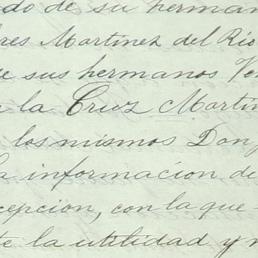 do de su herman
res Martinez del Rio
e sus hermanos Ve
a la Cruz Martin
los mismos Don
a informacion de
cepcion, con la que
te la utilidad y n